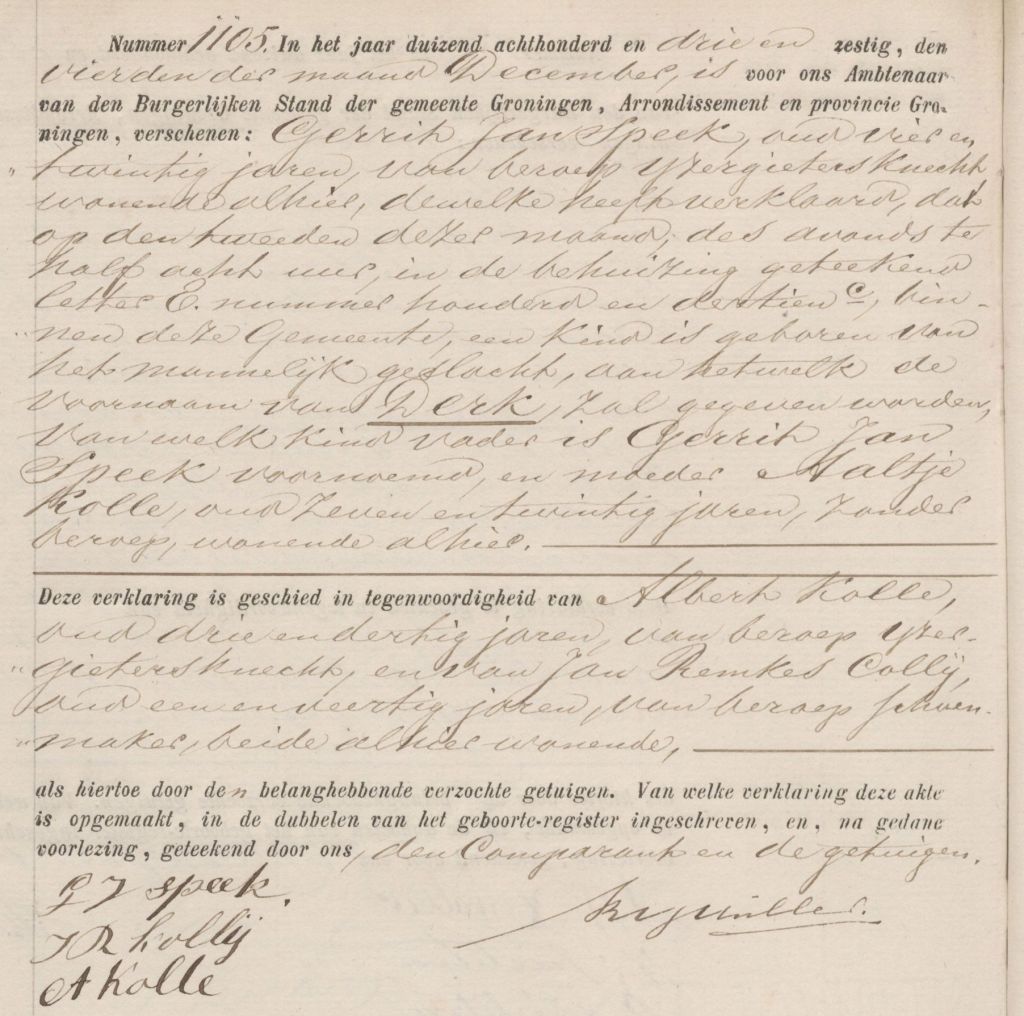 Nummer 1105. In het jaar duizend achthonderd en drie en zestig, den
vierden der maand December, is voor ons Ambtenaar
van den Burgerlijken Stand der gemeente Groningen, Arrondissement en provincie Gro-
ningen, verschenen: Gerrit Jan Speek, oud vier en
twintig jaren, van beroep yzergieters knecht,
wonende alhier, dewelke heeft verklaard, dat
op den tweeden dezer maand, des avonds te
half acht uur, in de behuizing geteekend
letter E. nummer honderd en dertien c, bin-
nen deze Gemeente, een kind is geboren van
het mannelijk geslacht, aan hetwelk de
voornaam van Derk, zal gegeven worden,
van welk kind vader is Gerrit Jan
Speek voornoemd, en moeder Aaltje
Kolle, oud zeven en twintig jaren, zonder
beroep, wonende alhier.
Deze verklaring is geschied in tegenwoordigheid van Albert Kolle,
oud drie en dertig jaren, van beroep yzer-
gietersknecht, en van Jan Remkes Collij,
oud een en veertig jaren, van beroep schoen-
maker, beide alhier wonende,
als hiertoe door den belanghebbende verzochte getuigen. Van welke verklaring deze akte
is opgemaakt, in de dubbelen van het geboorte-register ingeschreven, en, na gedane
voorlezing, geteekend door ons, den Comparant en de getuigen.
G J speek.
J R kollij
A Kolle